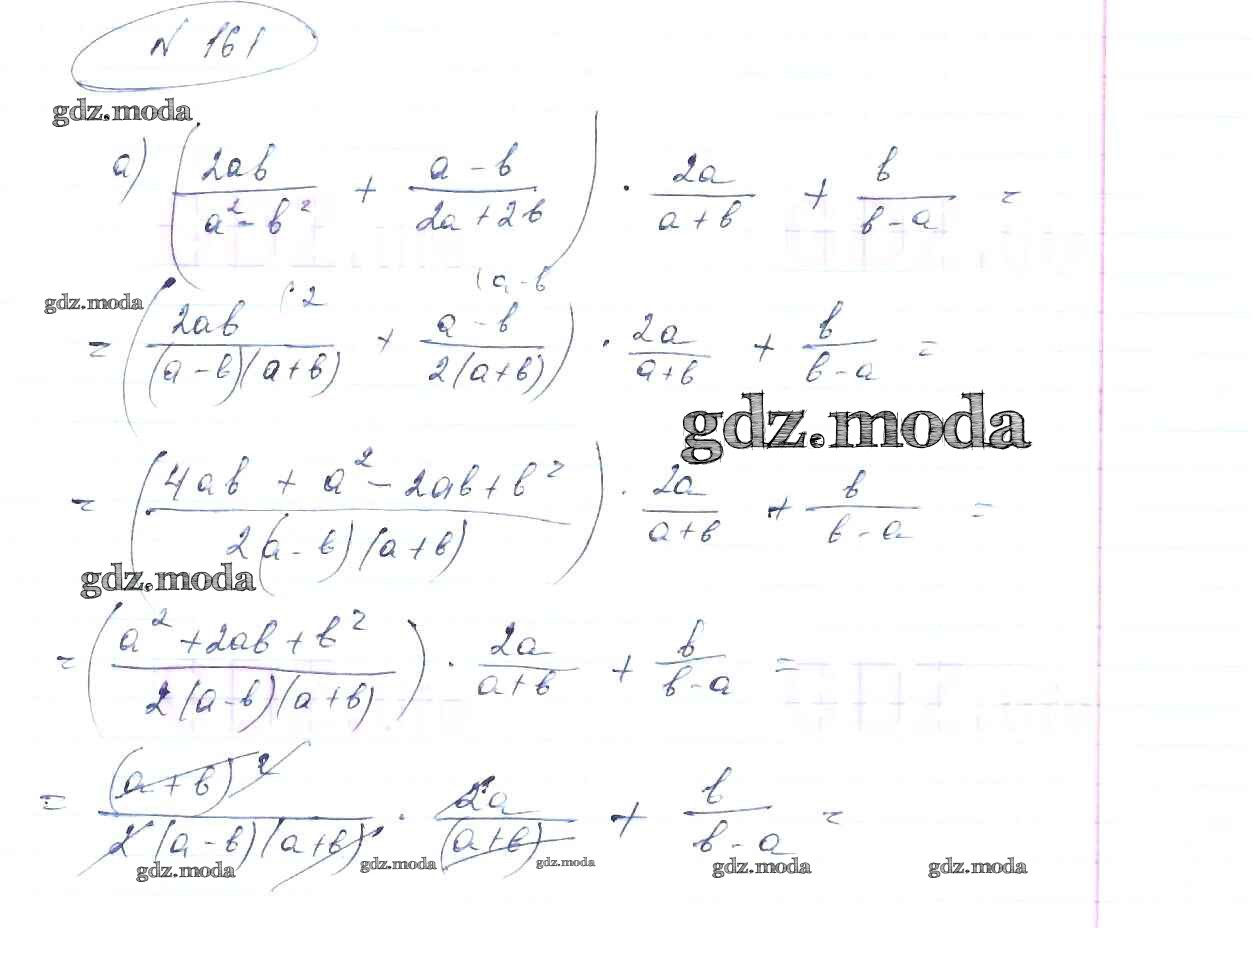 № 161
gdz.moda
а) (2ab/(a² - b²) + (a - b)/(2a + 2b)) · 2a/(a + b) + b/(b - a) =
gdz.moda
= (2ab (·2/((a - b)(a + b)) + (a - b) (a - b/(2(a + b))) · 2a/(a + b) + b/(b - a) =
gdz.moda
= ((4ab + a² - 2ab + b²)/(2(a - b)(a + b))) · 2a/(a + b) + b/(b - a) =
gdz.moda
= ((a² + 2ab + b²)/(2(a - b)(a + b))) · 2a/(a + b) + b/(b - a) =
= (a + b)²/(2(a - b)(a + b)) · 2a/(a + b) + b/(b - a) =
gdz.moda gdz.moda gdz.moda gdz.moda gdz.moda